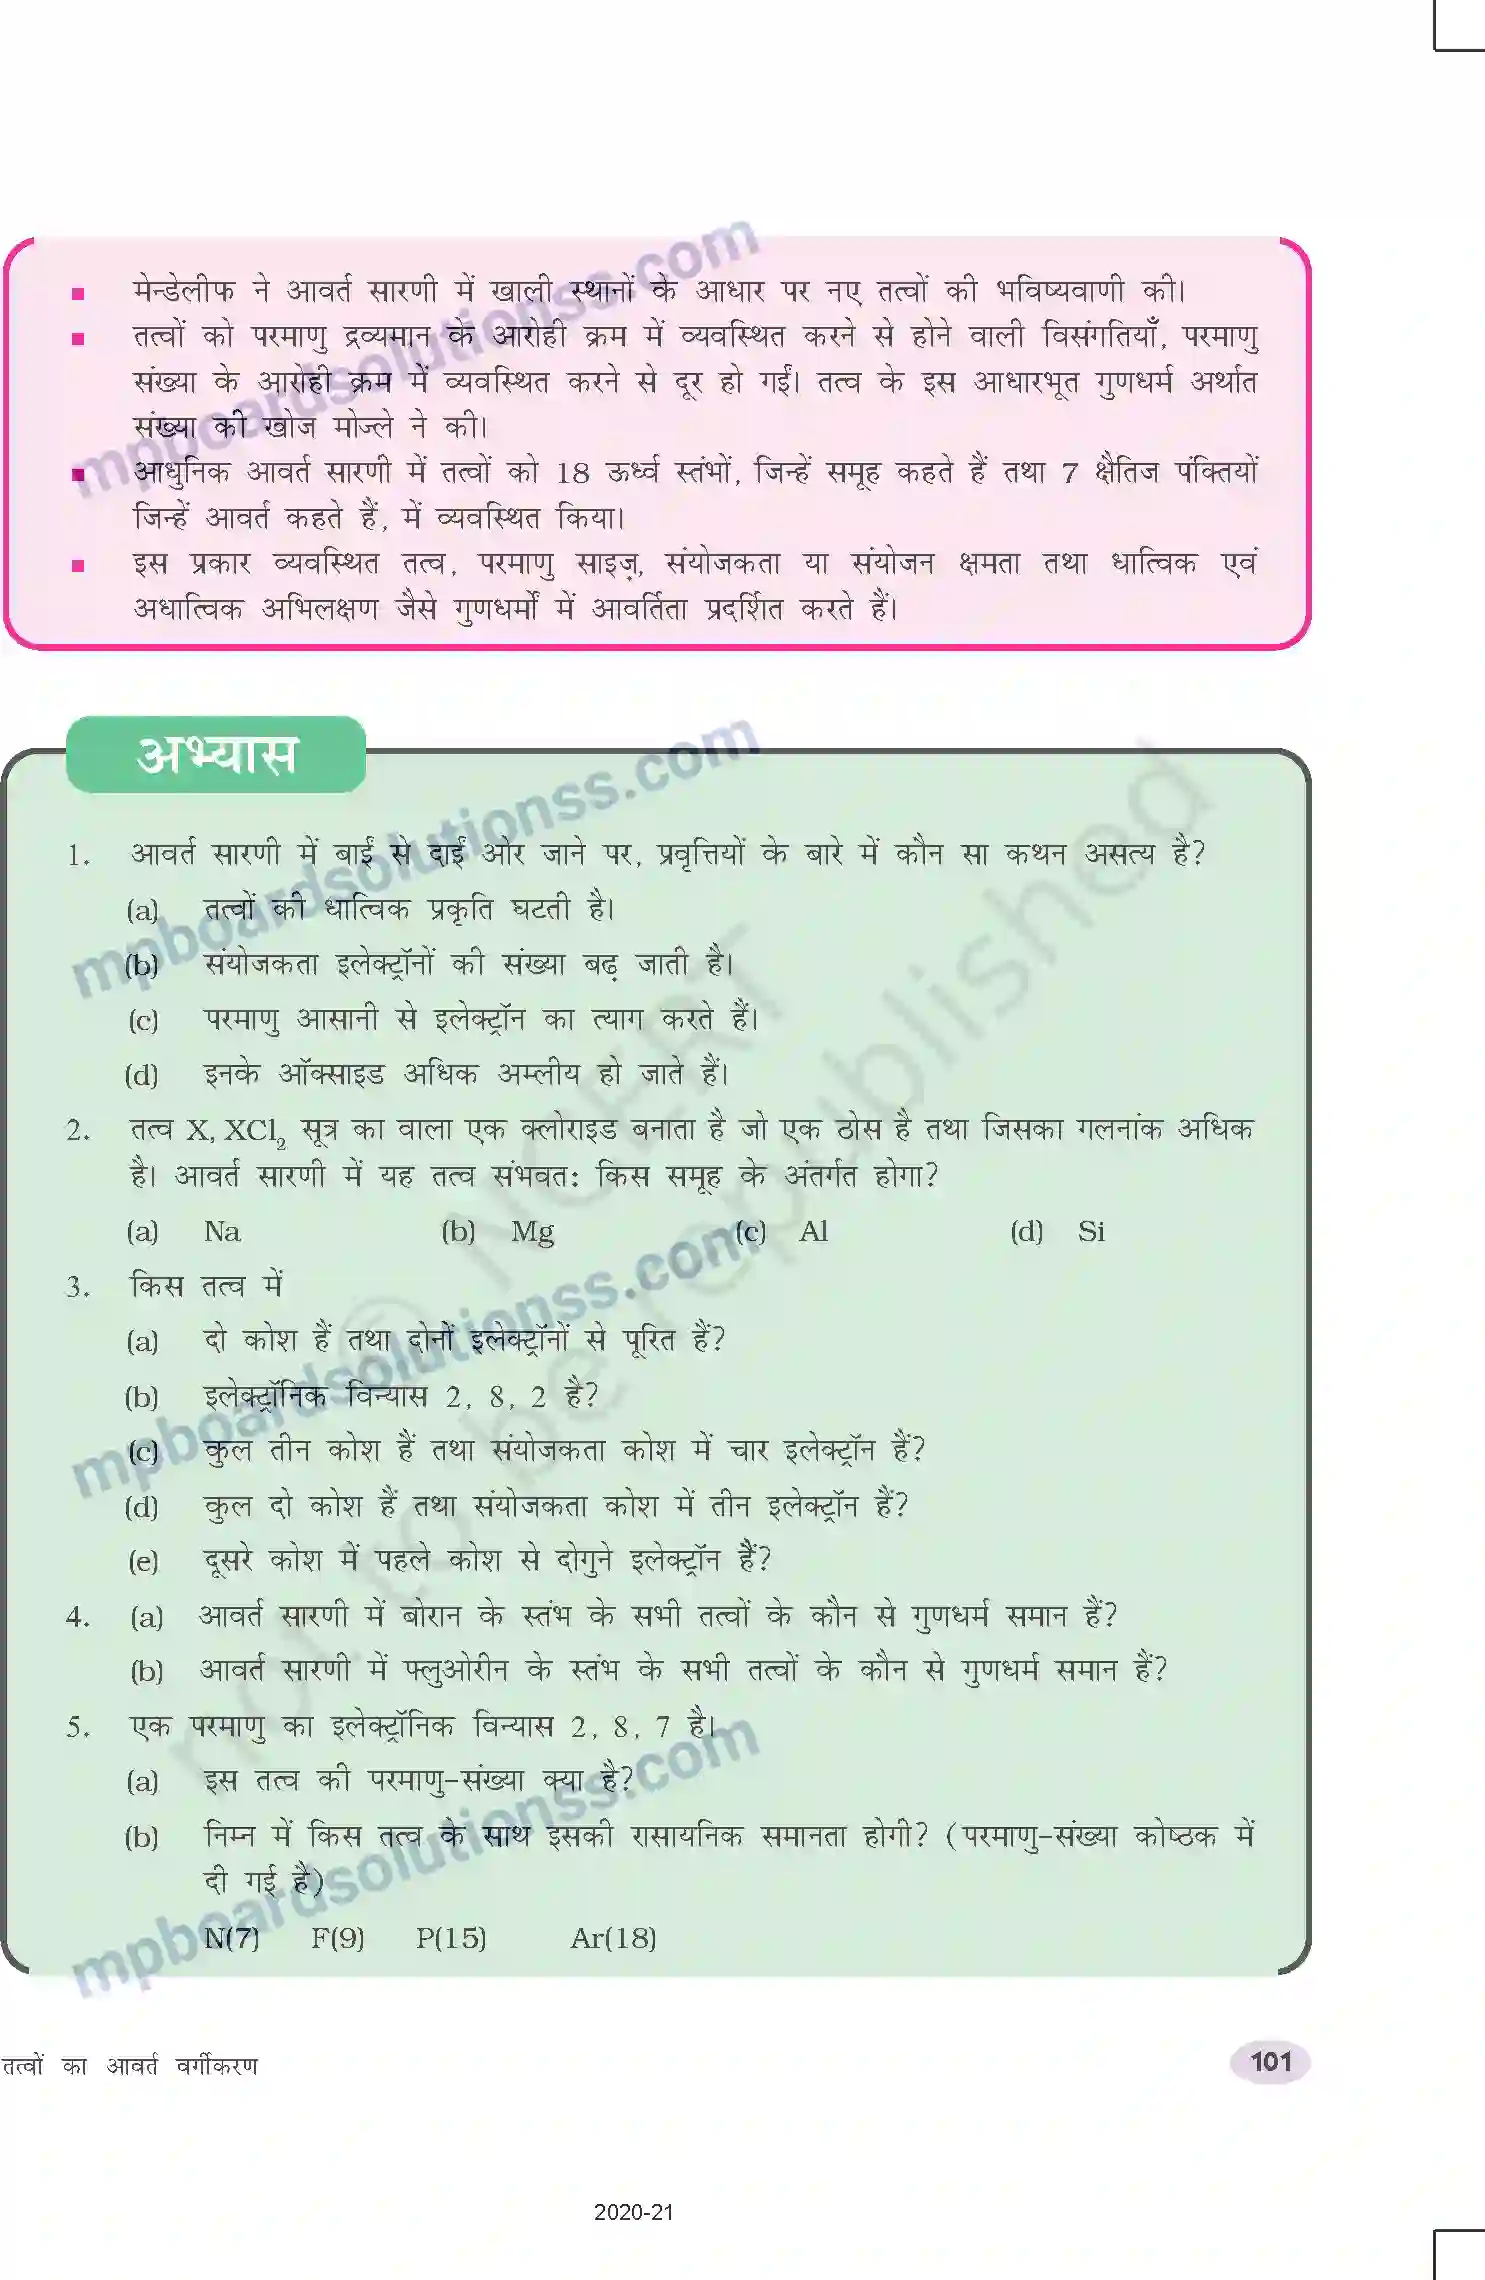 ■ मेन्डेलीफ ने आवर्त सारणी में खाली स्थानों के आधार पर नए तत्वों की भविष्यवाणी की।
■ तत्वों को परमाणु द्रव्यमान के आरोही क्रम में व्यवस्थित करने से होने वाली विसंगतियाँ, परमाणु
संख्या के आरोही क्रम में व्यवस्थित करने से दूर हो गईं। तत्व के इस आधारभूत गुणधर्म अर्थात
संख्या की खोज मोज्ले ने की।
■ आधुनिक आवर्त सारणी में तत्वों को 18 ऊर्ध्व स्तंभों, जिन्हें समूह कहते हैं तथा 7 क्षैतिज पंक्तियों
जिन्हें आवर्त कहते हैं, में व्यवस्थित किया।
■ इस प्रकार व्यवस्थित तत्व, परमाणु साइज़, संयोजकता या संयोजन क्षमता तथा धात्विक एवं
अधात्विक अभिलक्षण जैसे गुणधर्मों में आवर्तिता प्रदर्शित करते हैं।
अभ्यास
1. आवर्त सारणी में बाईं से दाईं ओर जाने पर, प्रवृत्तियों के बारे में कौन सा कथन असत्य है?
(a) तत्वों की धात्विक प्रकृति घटती है।
(b) संयोजकता इलेक्ट्रॉनों की संख्या बढ़ जाती है।
(c) परमाणु आसानी से इलेक्ट्रॉन का त्याग करते हैं।
(d) इनके ऑक्साइड अधिक अम्लीय हो जाते हैं।
2. तत्व X, XCl₂ सूत्र का वाला एक क्लोराइड बनाता है जो एक ठोस है तथा जिसका गलनांक अधिक
है। आवर्त सारणी में यह तत्व संभवत: किस समूह के अंतर्गत होगा?
(a) Na (b) Mg (c) Al (d) Si
3. किस तत्व में
(a) दो कोश हैं तथा दोनों इलेक्ट्रॉनों से पूरित हैं?
(b) इलेक्ट्रॉनिक विन्यास 2, 8, 2 है?
(c) कुल तीन कोश हैं तथा संयोजकता कोश में चार इलेक्ट्रॉन हैं?
(d) कुल दो कोश हैं तथा संयोजकता कोश में तीन इलेक्ट्रॉन हैं?
(e) दूसरे कोश में पहले कोश से दोगुने इलेक्ट्रॉन हैं?
4. (a) आवर्त सारणी में बोरान के स्तंभ के सभी तत्वों के कौन से गुणधर्म समान हैं?
(b) आवर्त सारणी में फ्लुओरीन के स्तंभ के सभी तत्वों के कौन से गुणधर्म समान हैं?
5. एक परमाणु का इलेक्ट्रॉनिक विन्यास 2, 8, 7 है।
(a) इस तत्व की परमाणु-संख्या क्या है?
(b) निम्न में किस तत्व के साथ इसकी रासायनिक समानता होगी? (परमाणु-संख्या कोष्ठक में
दी गई है)
N(7) F(9) P(15) Ar(18)
तत्वों का आवर्त वर्गीकरण
101
2020-21
mpboardsolutionss.com
mpboardsolutionss.com
mpboardsolutionss.com
mpboardsolutionss.com
© NCERT
not to be republished